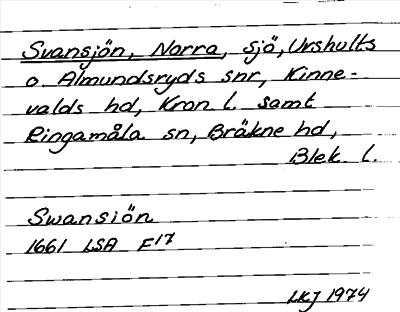 Svansjön, Norra, sjö, Urshults
o. Almundsryds snr, Kinne-
valds hd, Kron l. samt
Ringamåla sn, Bräkne hd,
Blek l.
Swansiön
1661 LSA F17
LKJ 1974